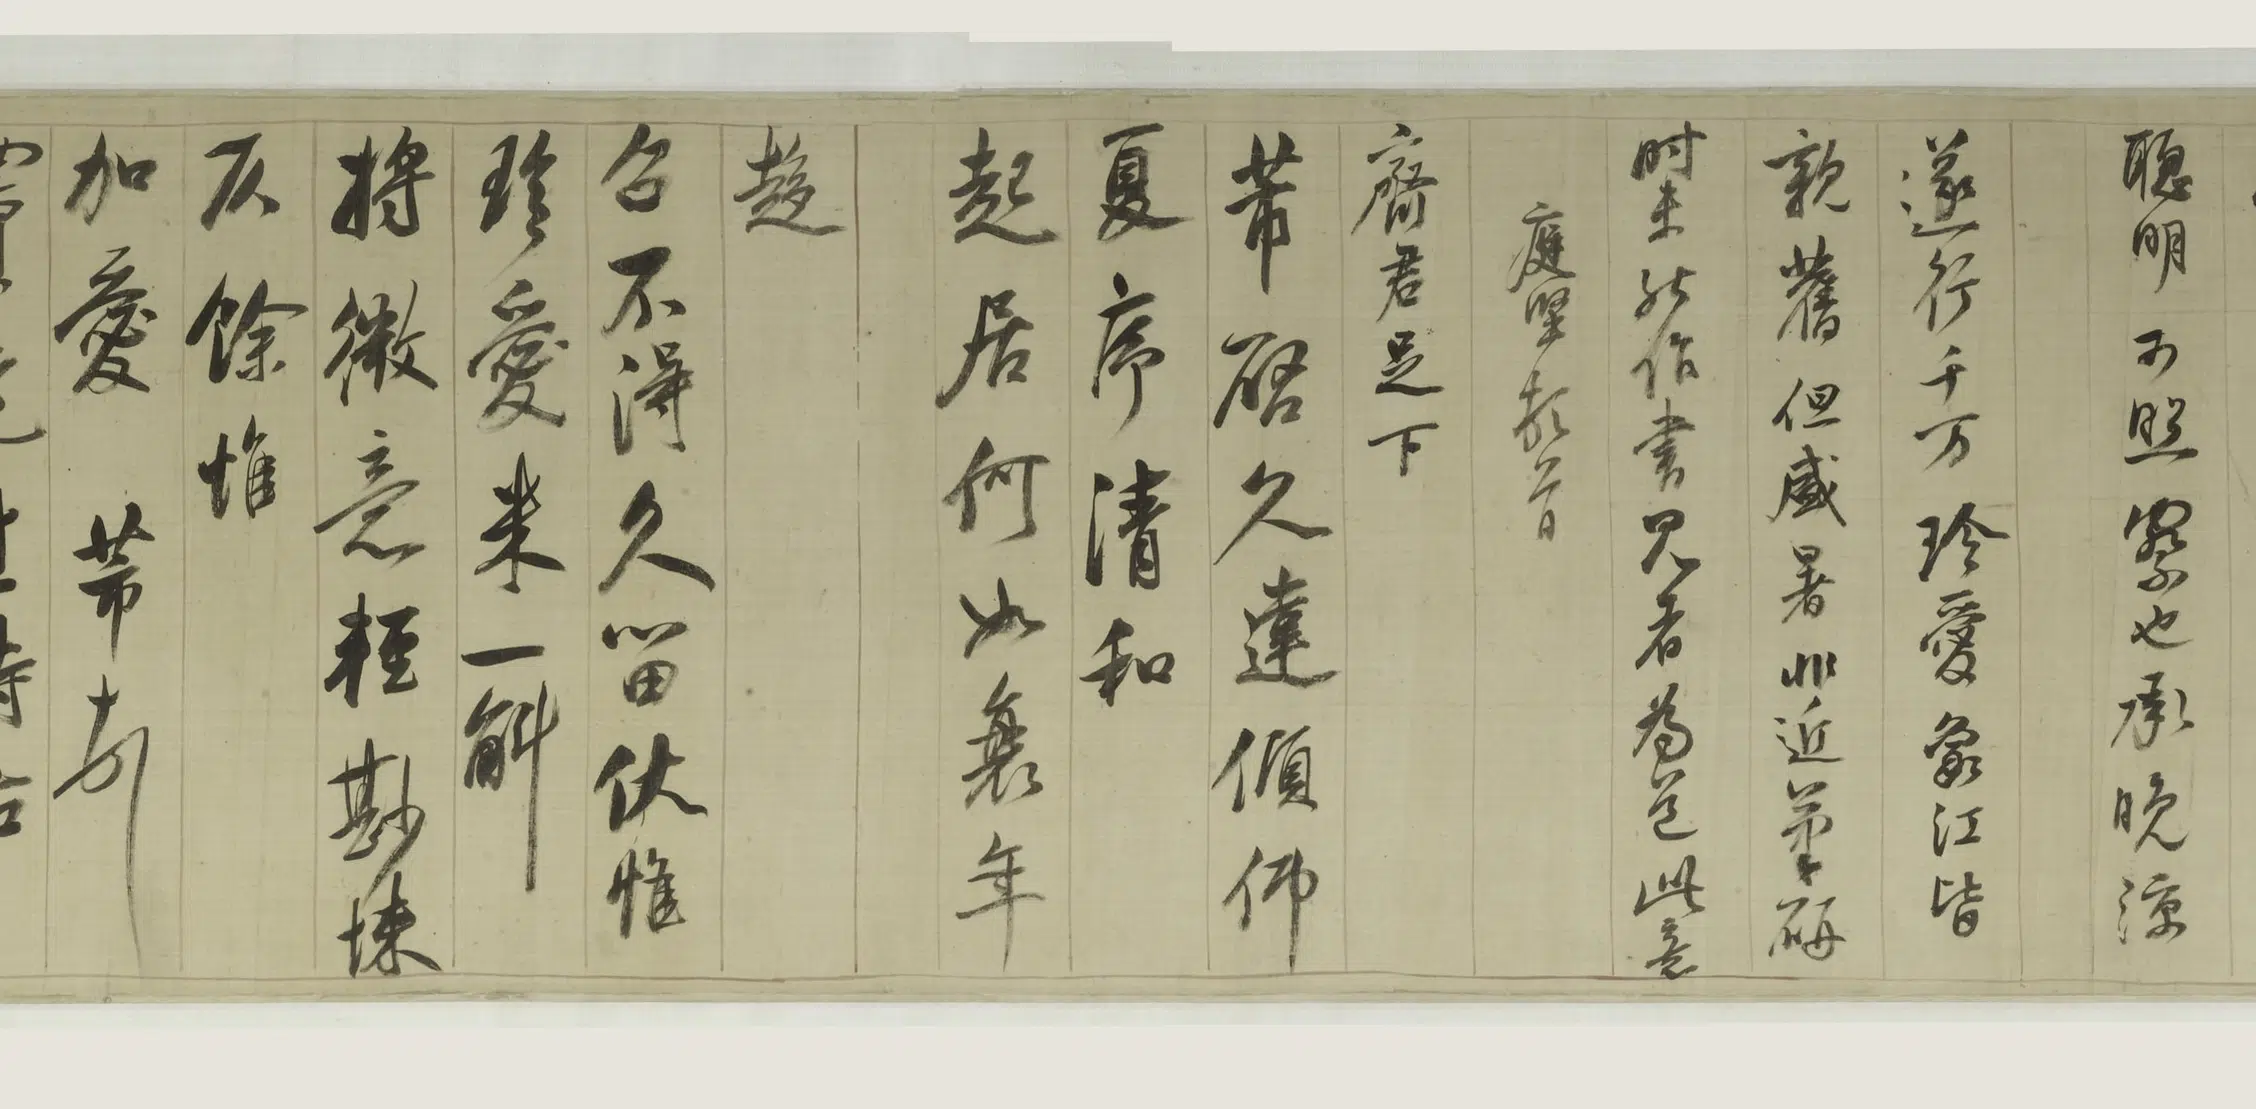 聰明可照察也承晚涼
遂行千万珍愛象江皆
親舊但盛暑非近筆研
時未能作書見者為道此意
庭堅頓首
齋君足下
芾啓久違傾仰
夏序清和
起居何如衰年
趍
召不得久留伏惟
珍愛米一斛
將微意輕尠悚
仄餘惟
加愛 芾頓首